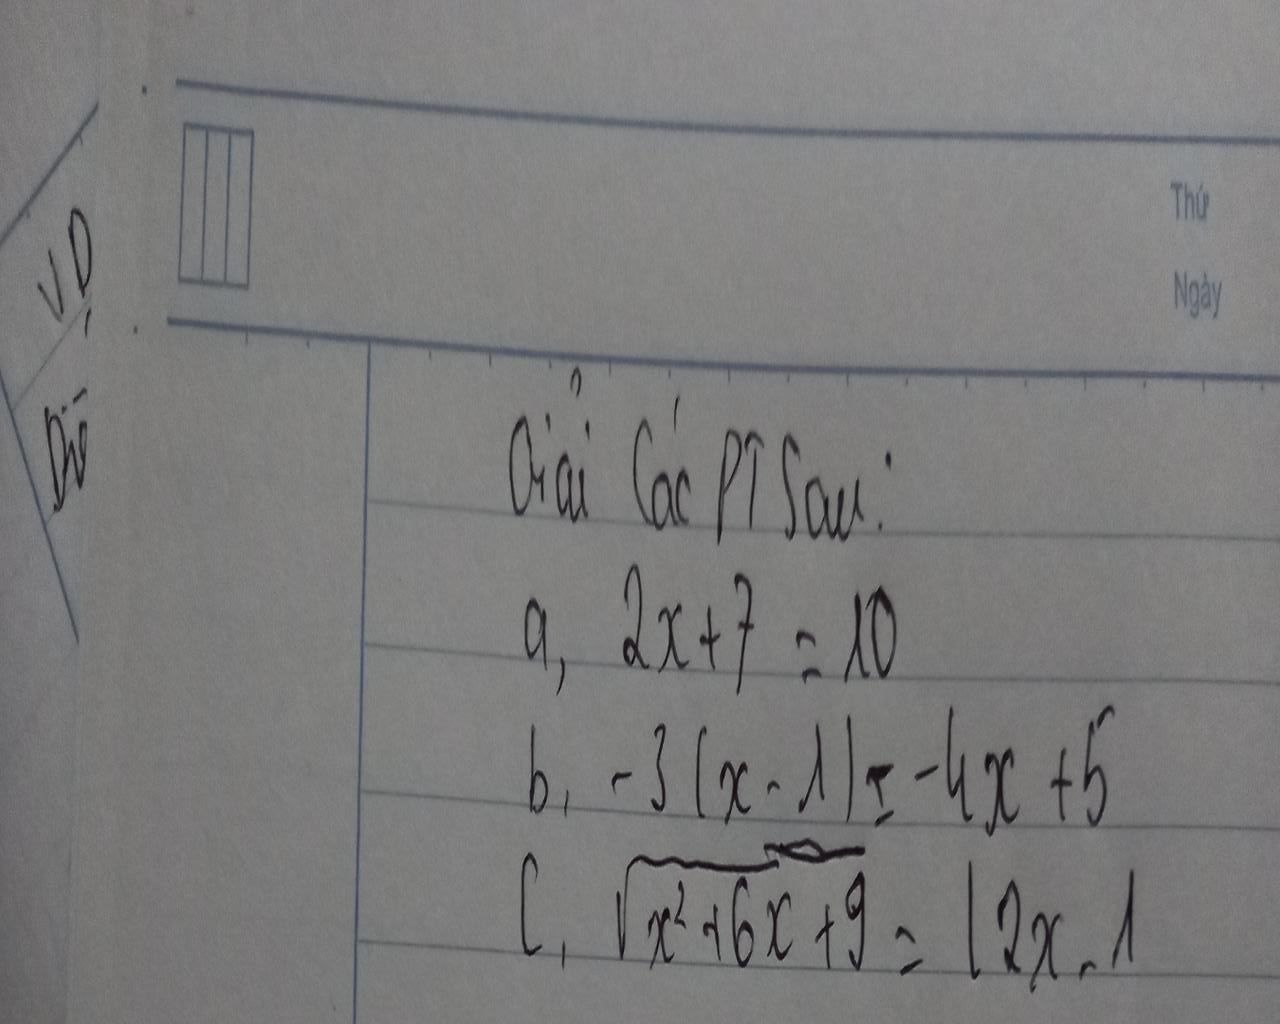 VD
Thứ
Ngày
Giải Các PT Sau:
a, 2x+7 = 10
b, -3(x-1) = -4x +5
C, √x²+6x+9 = |2x-1